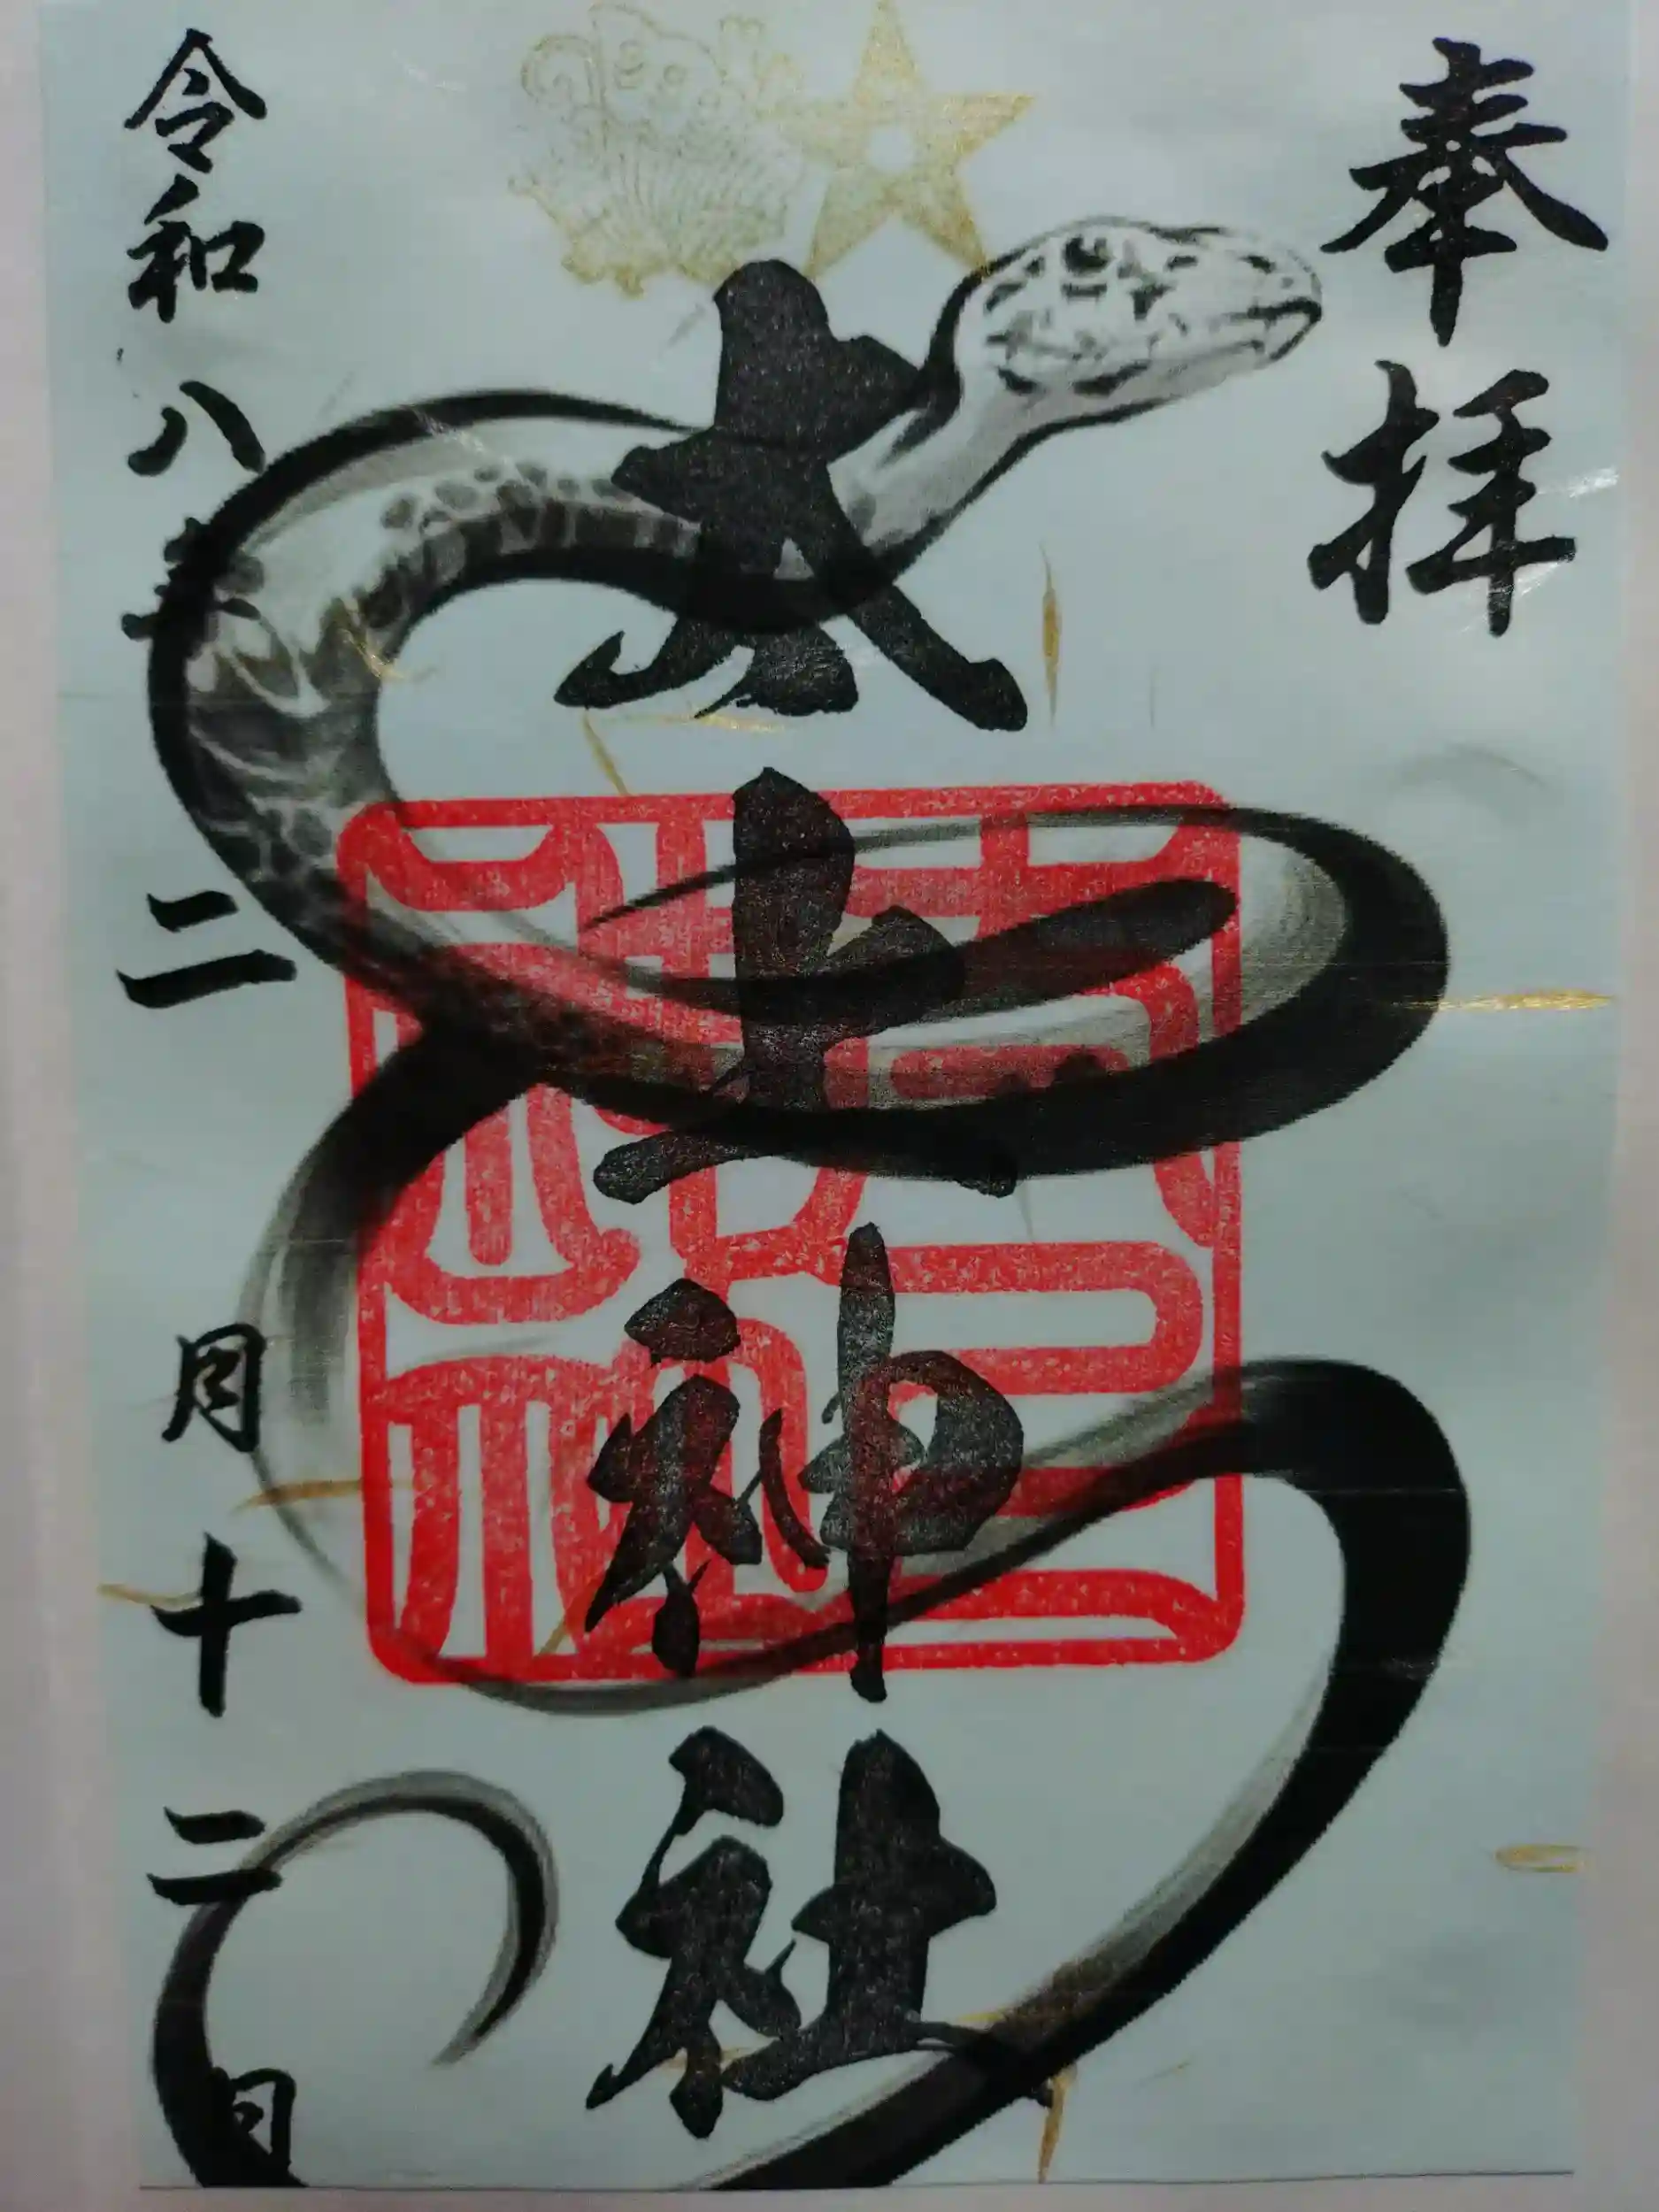 奉拝
太土神社
令和八年二月十二日